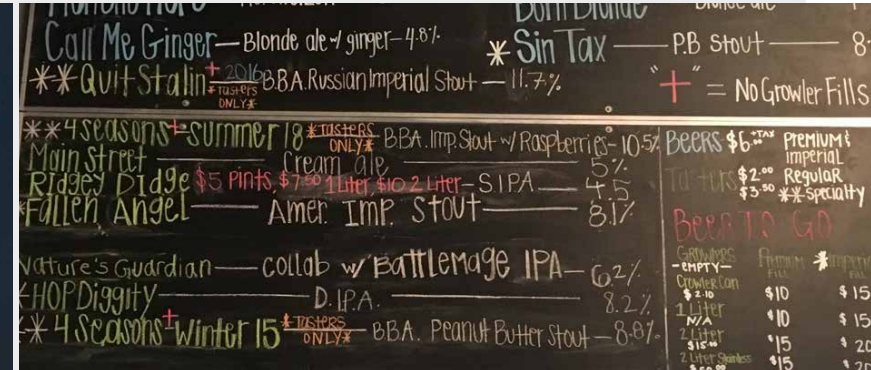 Call Me Ginger — Blonde ale w/ ginger - 4.8%
* Sin Tax — P.B Stout — 8.
** Quit Stalin + 2016 *Tasters ONLY* B.B.A. Russian Imperial Stout — 11.7%
"+" = No Growler Fills
**4 Seasons + Summer 18 *Tasters ONLY* BBA. Imp. Stout w/ Raspberries - 10.5%
Main Street — Cream ale — 5%
Ridgey Didge $5 Pints, $7.50 1 Liter, $10 2 Liter - S.I.PA — 4.5
Fallen Angel — Amer. Imp. Stout — 8.1%
Nature's Guardian — collab w/ Battlemage IPA - 6.2%
HOP Diggity — D.I.P.A. — 8.2%
* 4 Seasons + Winter 15 *Tasters ONLY* BBA. Peanut Butter Stout - 8.8%
BEERS $6.00 +TAX Premium & imperial
Tasters $2.00 Regular
$3.50 ** Specialty
Beer To Go
Growlers Premium Fill * Imperial Fill
-EMPTY-
Crowler Can
$2.10 $10 $15
1 Liter
N/A $10 $15
2 Liter
$15.00 $15 $20
2 Liter Stainless
$15